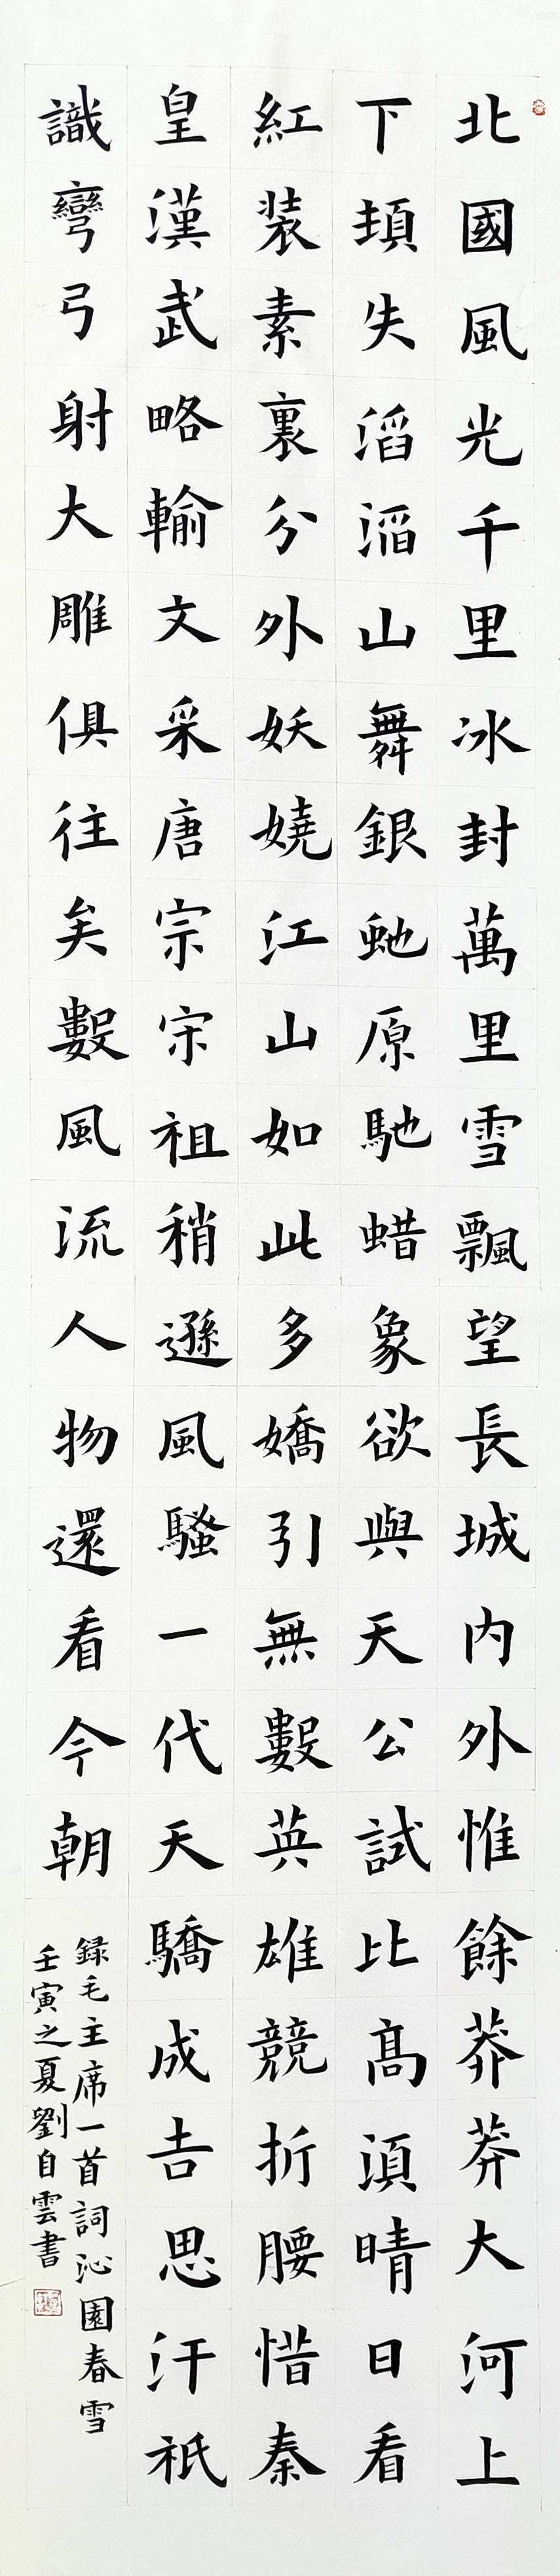 北國風光千里冰封萬里雪飄望長城内外惟餘莽莽大河上
下頓失滔滔山舞銀虵原馳蜡象欲與天公試比髙湏晴日看
紅装素裏分外妖嬈江山如此多嬌引無數英雄競折腰惜秦
皇漢武略輸文采唐宗宋祖稍遜風騷一代天驕成吉思汗祇
識彎弓射大雕俱往矣數風流人物還看今朝
録毛主席一首詞沁園春雪
壬寅之夏劉自雲書